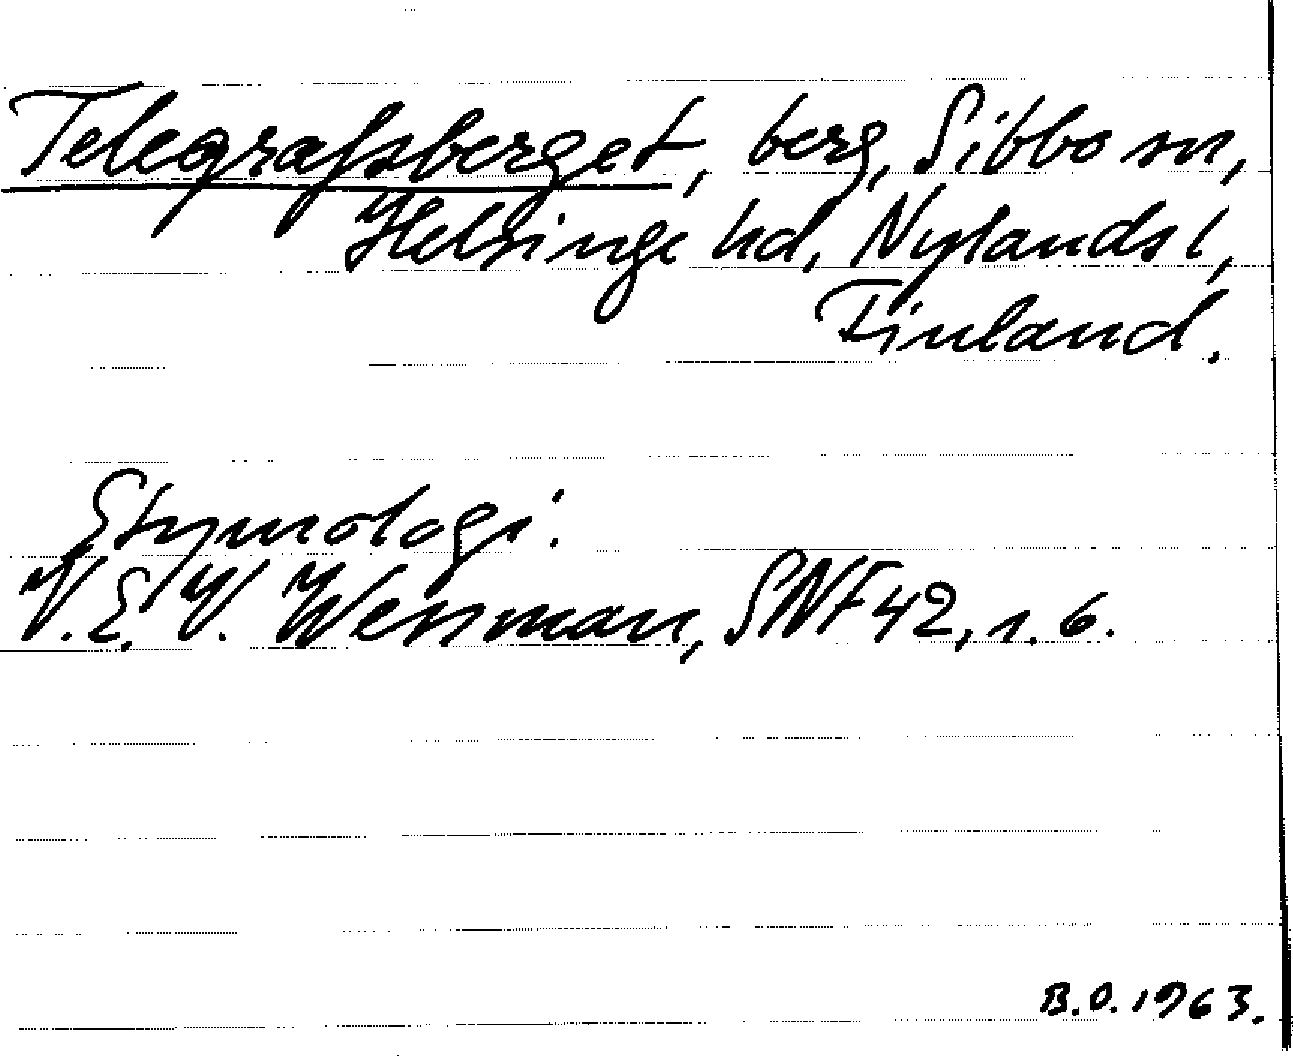 Telegrafsberget, berg, Sibbo sn,
Helsinge hd, Nylands l,
Finland.
Etymologi:
V. E. V. Wessman, SNF 42, s. 6.
B.O. 1963.